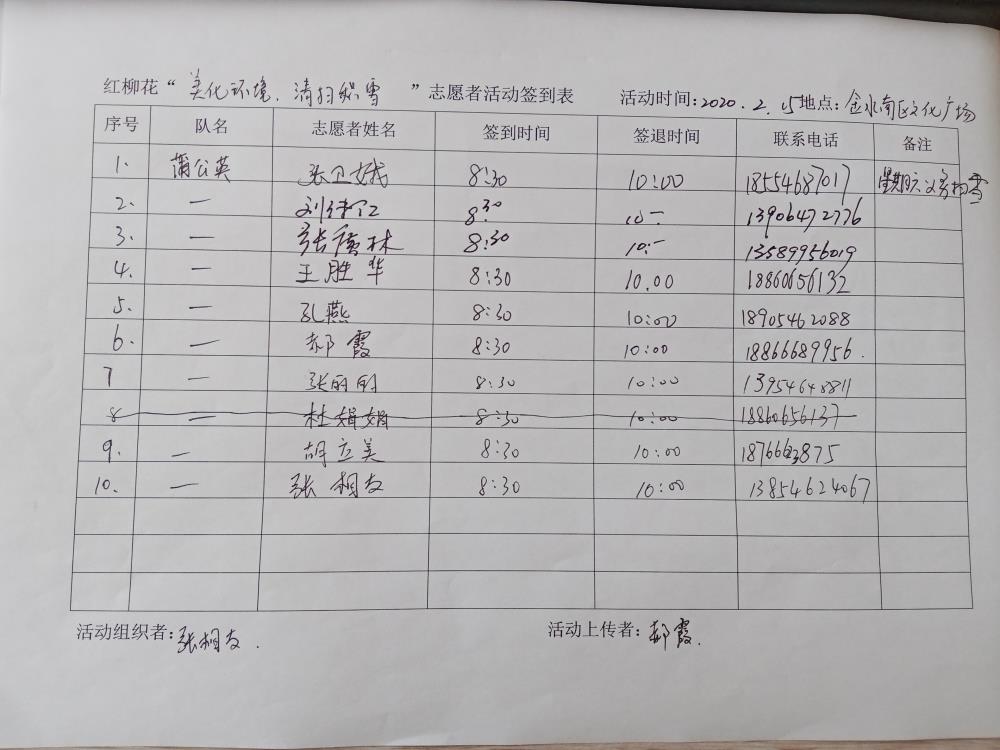 红柳花“美化环境.清扫积雪”志愿者活动签到表 活动时间:2020.2.15 地点:金水南区文化广场
序号 队名 志愿者姓名 签到时间 签退时间 联系电话 备注
1. 蒲公英 张卫娥 8:30 10:00 18554687017 星期六义务扫雪
2. — 8:30 10— 13906472776
3. — 8:30 10:— 13589956019
4. — 王胜华 8:30 10.00 18860656132
5. — 孔燕 8:30 10:00 18905462088
6. — 郝霞 8:30 10:00 18866689956.
7 — 张丽丽 8:30 10:00 13954648811
8 — 杜娟娟 8:30 10:00 18860656137
9. — 胡立美 8:30 10:00
10. — 张桐友 8:30 10:00 13854624067
活动组织者:张桐友. 活动上传者:郝霞.